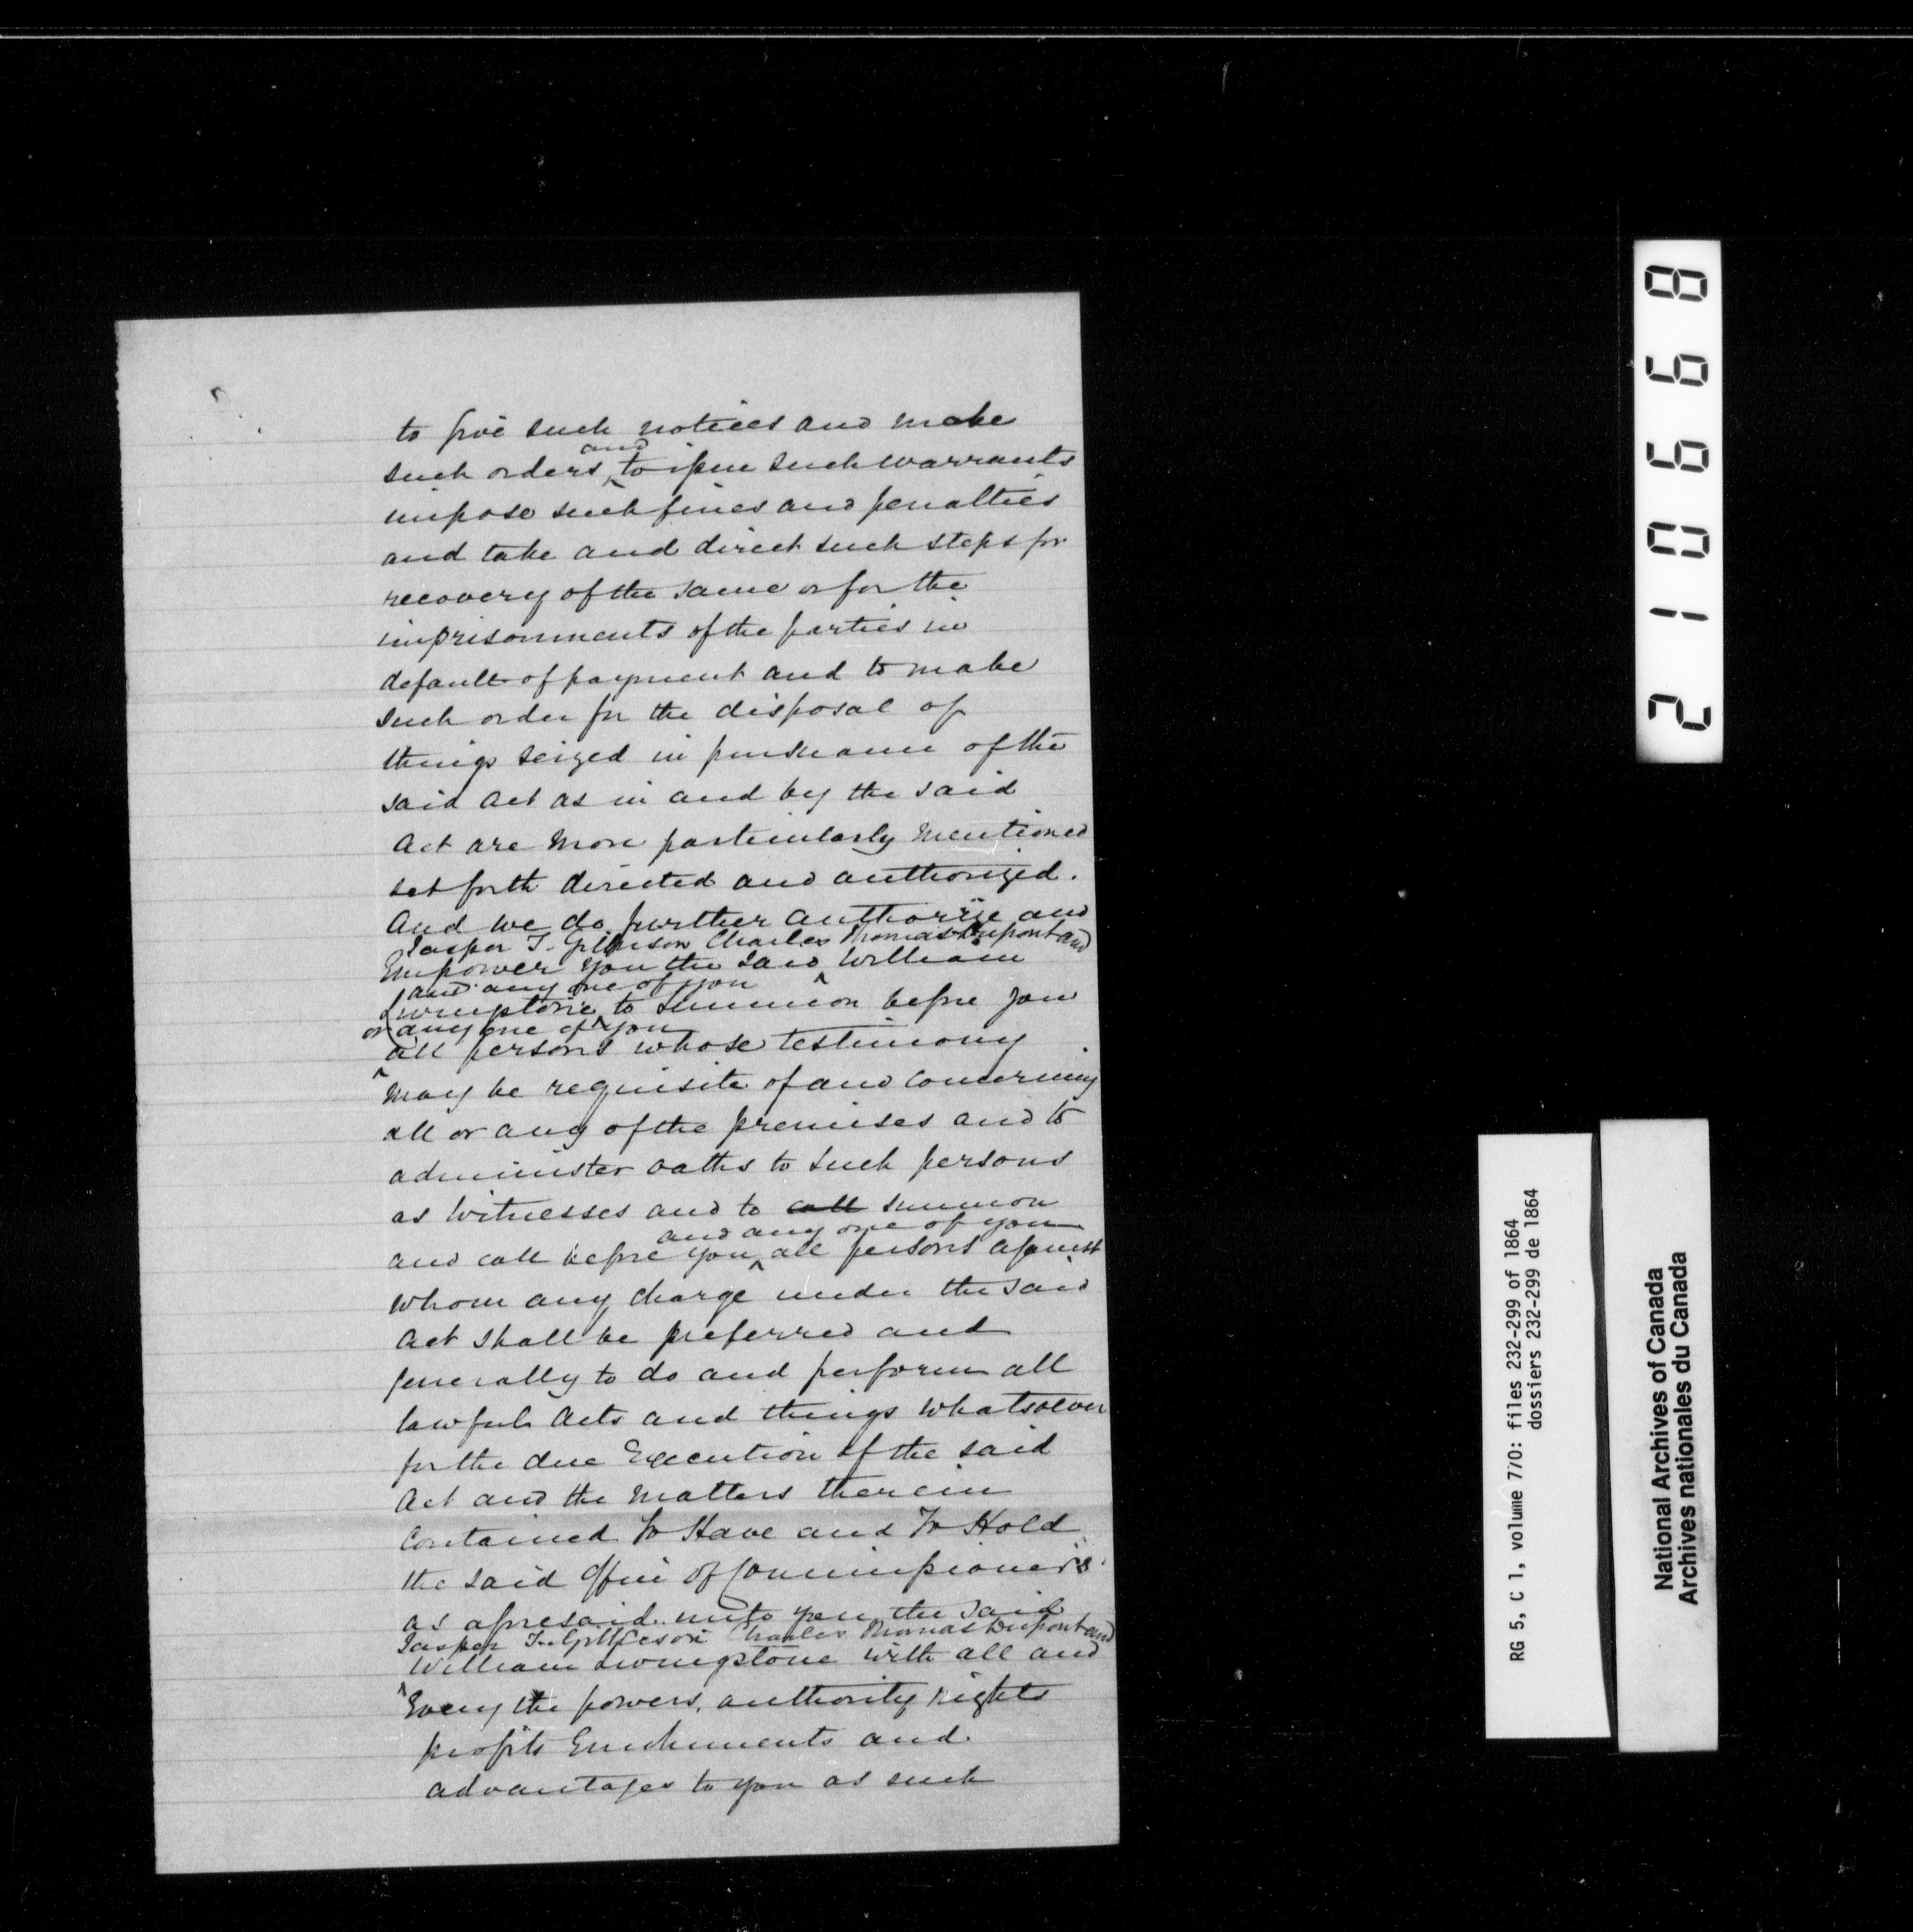 to give such notices and make
and
such orders to issue such warrants
impose such fines and penalties
and take and direct such steps for
recovery of the same or for the
imprisonments of the parties in
default of payment and to make
such order for the disposal of
things seized in pursuance of the
said Act as in and by the said
Act are more particularly mentioned
set forth directed and authorized.
And we do further authorize and
Jasper T. Gilkison Charles Thomas Dupont and
Empower you the said William
and any one of you
Livingstone to summon before you
or any one of you
all persons whose testimony
may be requisite of and concerning
all or any of the premises and to
administer oaths to such persons
as witnesses and to call summon
and any one of you
and call before you all persons against
whom any charge under the said
Act shall be preferred and
generally to do and perform all
lawful Acts and things whatsoever
for the due Execution of the said
Act and the matters therein
contained To Have and To Hold
the said office of Commissioners
as aforesaid unto you the said
Jasper T. Gilkison Charles Thomas Dupont and
William Livingstone with all and
Every the powers, authority rights
profits Emoluments and
advantages to you as such
210668
RG 5, C 1, volume 770: files 232-299 of 1864
dossiers 232-299 de 1864
National Archives of Canada
Archives nationales du Canada